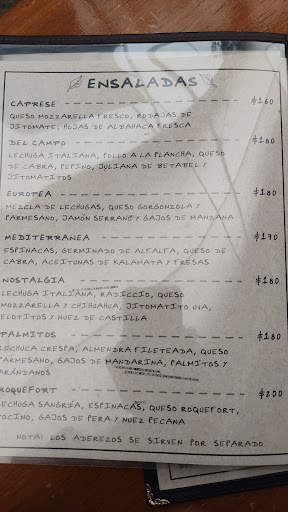 ENSALADAS
CAPRESE $160
QUESO MOZZARELLA FRESCO, RODAJAS DE
JITOMATE, HOJAS DE ALBAHACA FRESCA
DEL CAMPO
LECHUGA ITALIANA, POLLO A LA PLANCHA, QUESO
DE CABRA, PEPINO, JULIANA DE BETABEL Y
JITOMATITOS
EUROPEA $180
MEZCLA DE LECHUGAS, QUESO GORGONZOLA Y
PARMESANO, JAMÓN SERRANO Y GAJOS DE MANZANA
MEDITERRANEA $170
ESPINACAS, GERMINADO DE ALFALFA, QUESO DE
CABRA, ACEITUNAS DE KALAMATA Y FRESAS
NOSTALGIA $180
LECHUGA ITALIANA, RADICCIO, QUESO
MOZZARELLA Y CHIHUAHUA, JITOMATITO UVA,
ELOTITOS Y NUEZ DE CASTILLA
PALMITOS $180
LECHUGA CRESPA, ALMENDRA FILETEADA, QUESO
PARMESANO, GAJOS DE MANDARINA, PALMITOS Y
ARÁNDANOS
ROQUEFORT $200
LECHUGA SANGRÍA, ESPINACAS, QUESO ROQUEFORT,
TOCINO, GAJOS DE PERA Y NUEZ PECANA
NOTA: LOS ADEREZOS SE SIRVEN POR SEPARADO